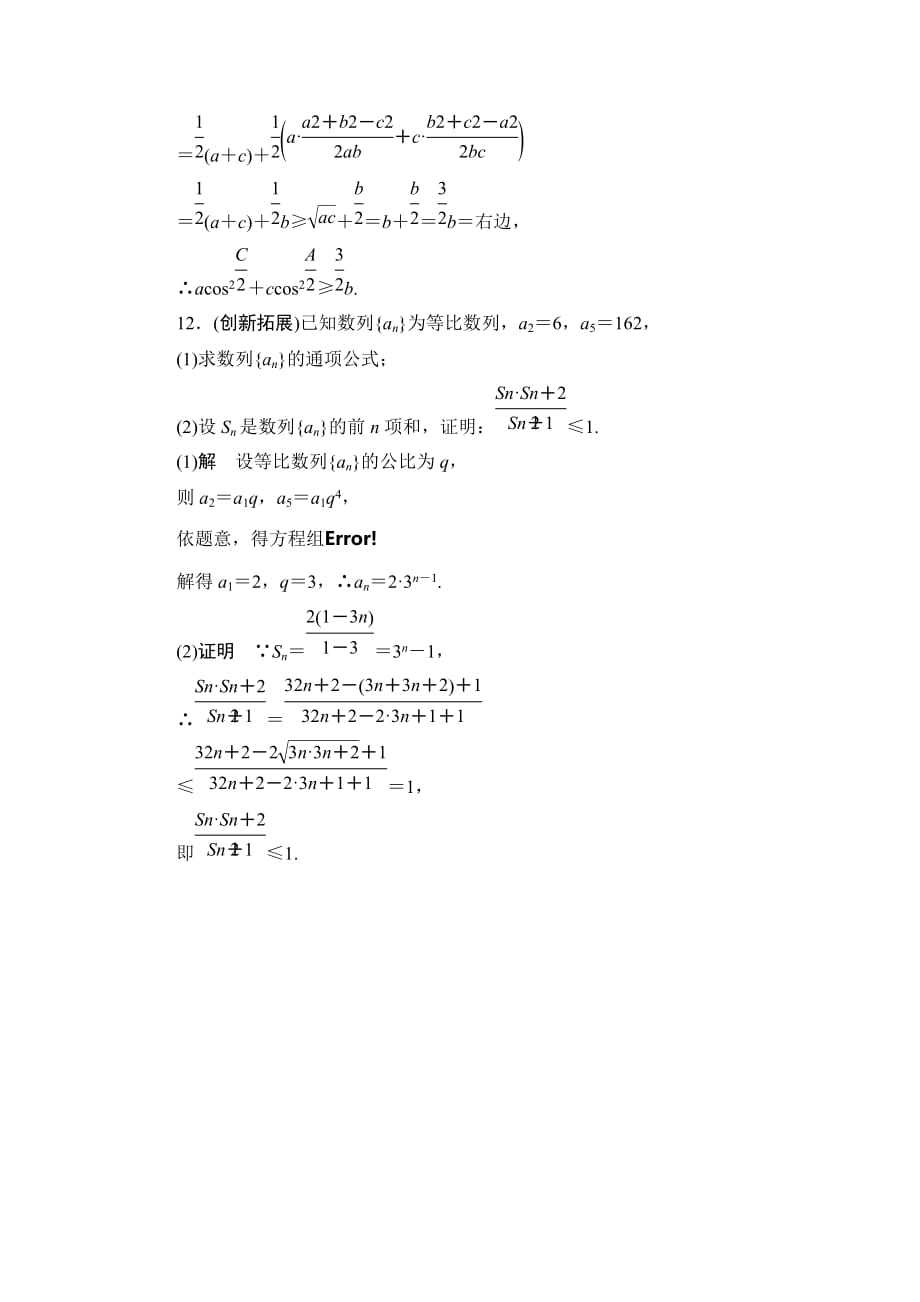 =1/2(a+c)+1/2(a·(a2+b2-c2)/2ab+c·(b2+c2-a2)/2bc)
=1/2(a+c)+1/2b≥√ac+b/2=b+b/2=3/2b=右边，
∴acos²C/2+ccos²A/2≥3/2b.
12．(创新拓展)已知数列{aₙ}为等比数列，a₂=6，a₅=162，
(1)求数列{aₙ}的通项公式；
(2)设 Sₙ是数列{aₙ}的前 n 项和，证明：Sn·Sn+2/Sn+12≤1.
(1)解　设等比数列{aₙ}的公比为 q，
则 a₂=a₁q，a₅=a₁q⁴，
依题意，得方程组Error!
解得 a₁=2，q=3，∴aₙ=2·3ⁿ⁻¹.
(2)证明　∵Sₙ=2(1-3n)/1-3=3ⁿ-1，
∴Sn·Sn+2/Sn+12=32n+2-(3n+3n+2)+1/32n+2-2·3n+1+1
≤32n+2-2√3n·3n+2+1/32n+2-2·3n+1+1=1，
即Sn·Sn+2/Sn+12≤1.